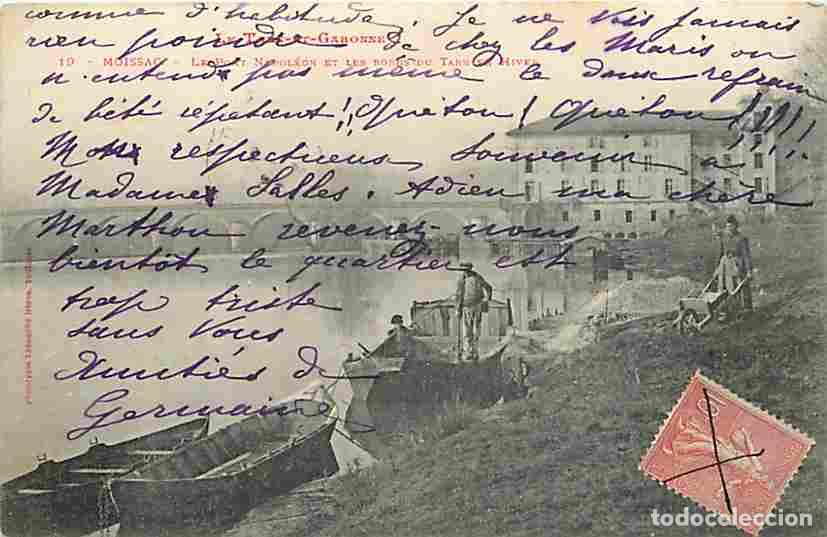 comme d'habitude. Je ne vois jamais
rien de chez les Maris on
Le Tarn-et-Garonne
19 - MOISSAC - Le Pont Napoléon et les bords du Tarn en Hiver
n'entend pas même le doux refrain
de bébé répétant !!
respectueux souvenir à
Madame Salles. Adieu ma chère
Marthou revenez-nous
bientôt le quartier est
trop triste
sans vous
Amitiés de
Germaine
phototypie Labouche frères, Toulouse
todocoleccion